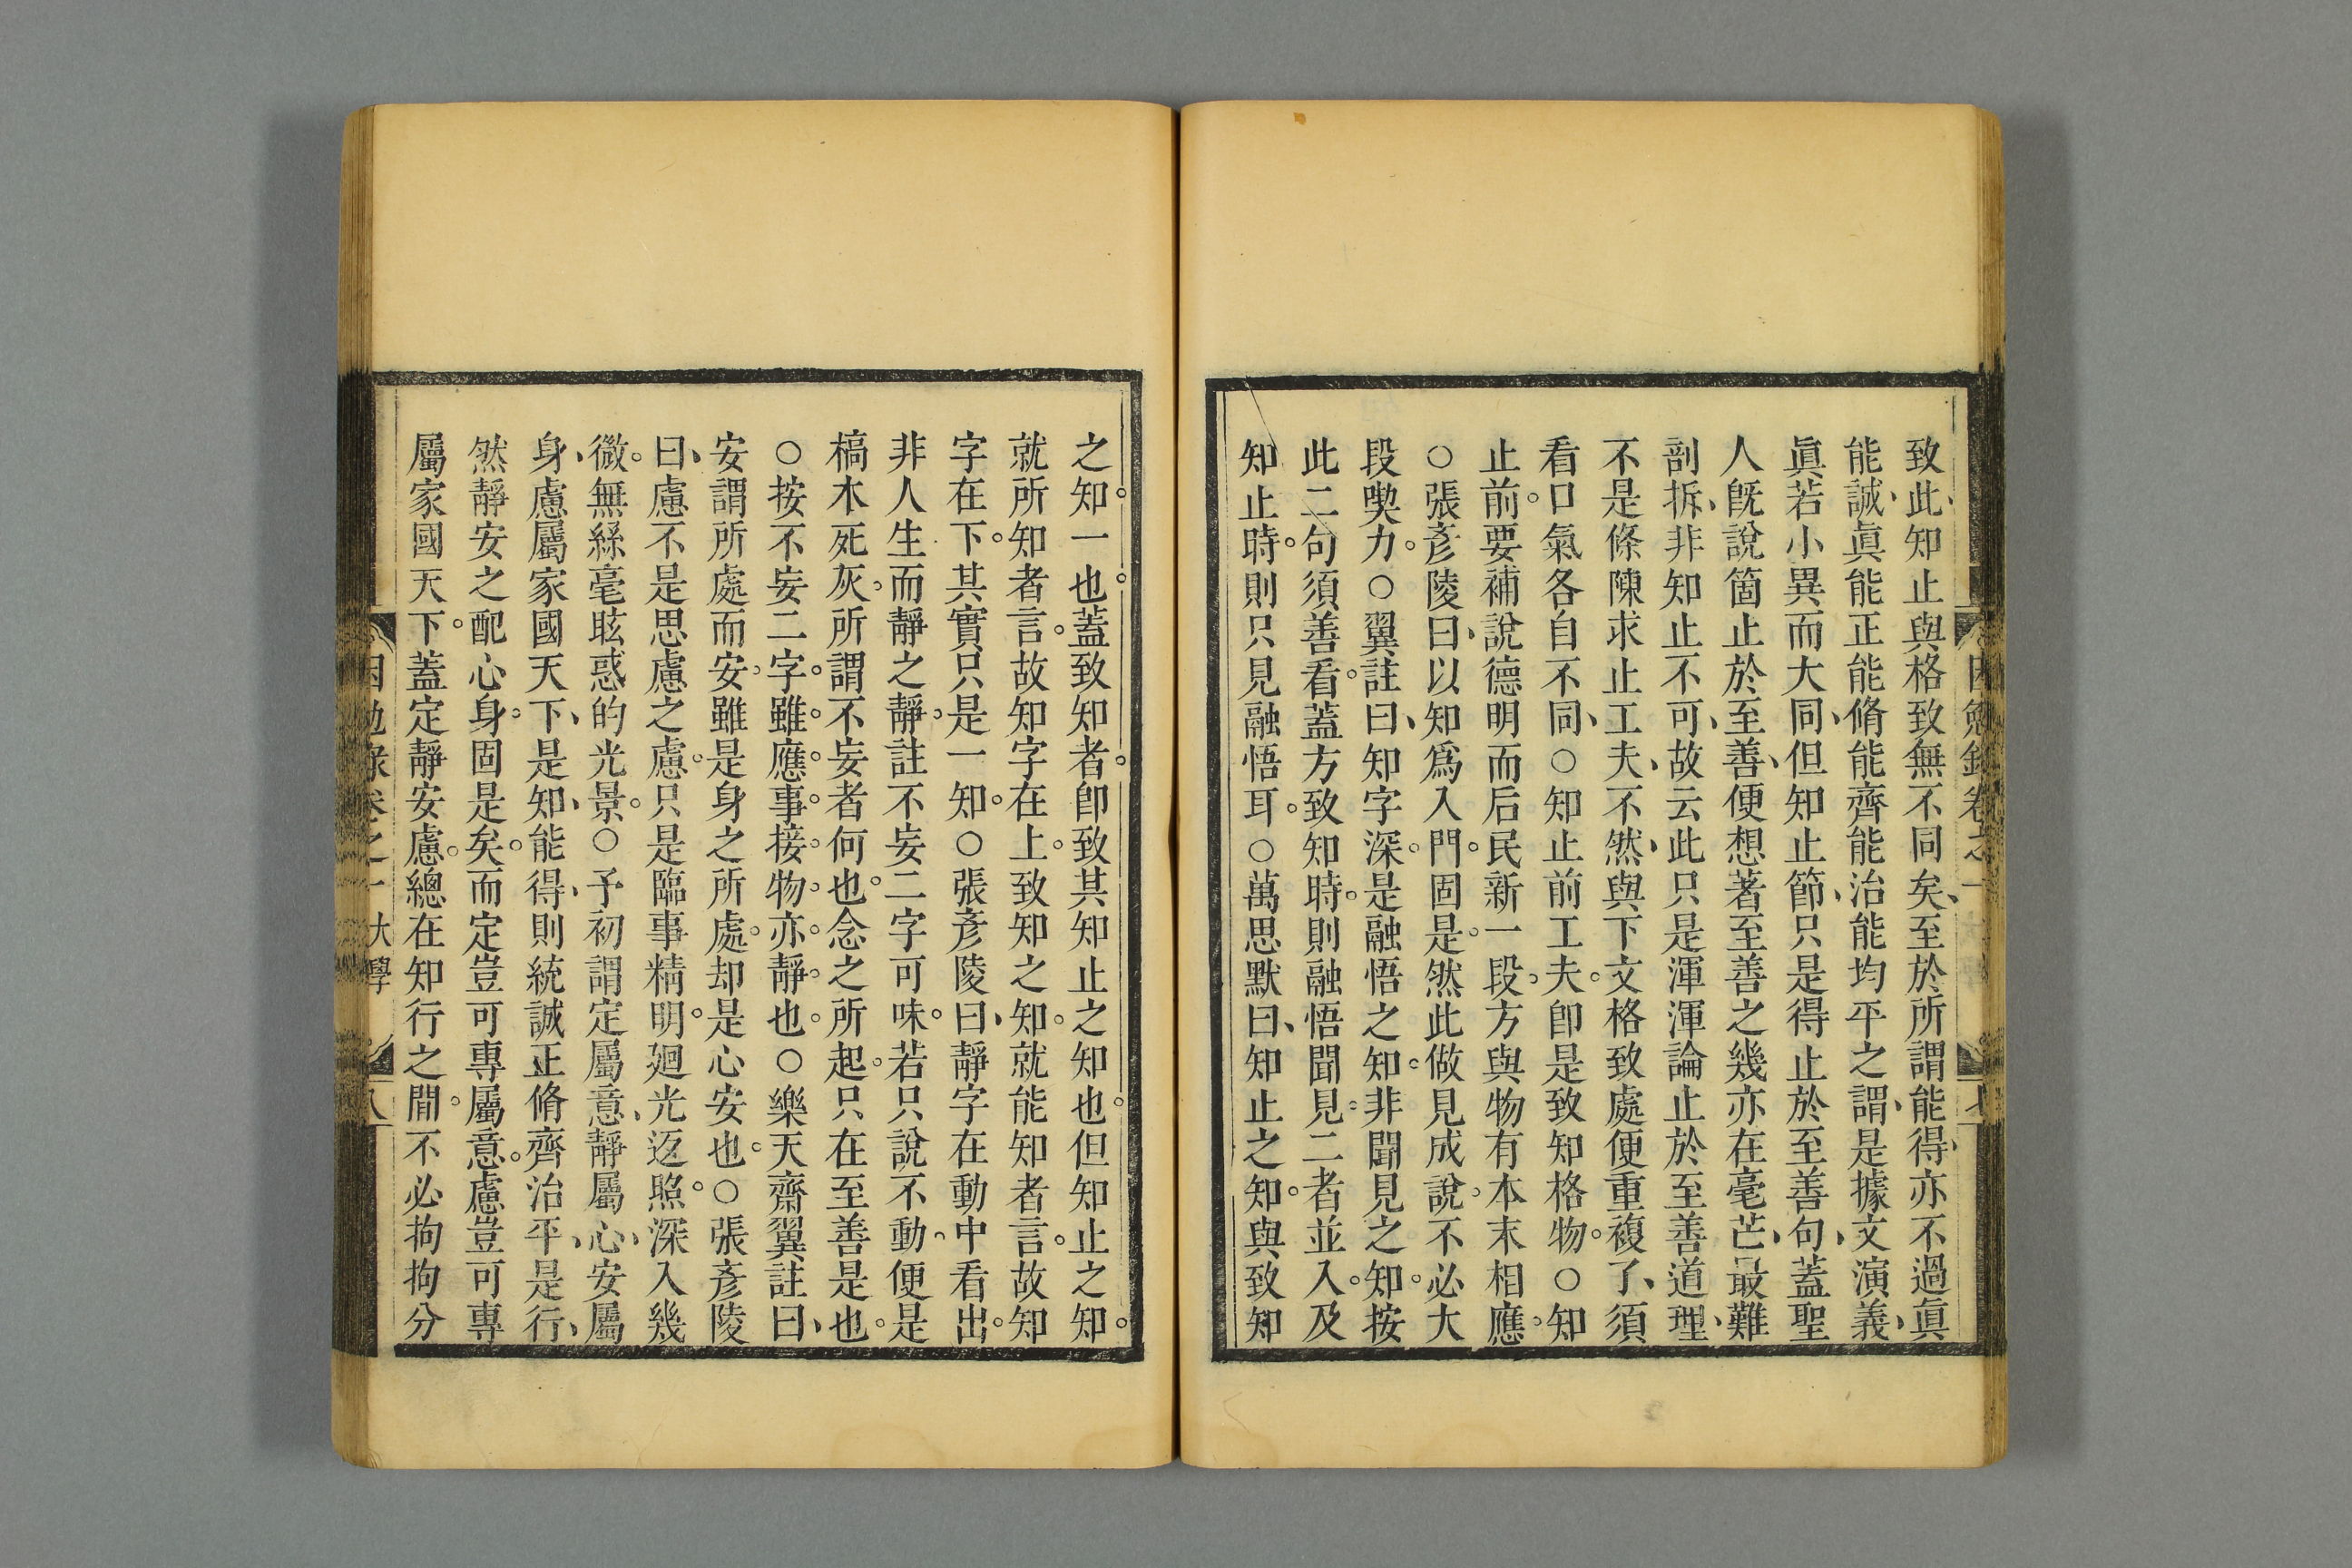 致此知止與格致無不同矣至於所謂能得亦不過眞
能誠眞能正能脩能齊能治能均平之謂是據文演義
眞若小異而大同但知止節只是得止於至善句蓋聖
人旣說箇止於至善便想著至至善之幾亦在毫芒最難
剖拆非知止不可故云此只是渾渾論止於至善道理
不是條陳求止工夫不然與下文格致處便重複了須
看口氣各自不同○知止前工夫卽是致知格物○知
止前要補說德明而后民新一段方與物有本末相應
○張彥陵曰以知爲入門固是然此做見成說不必大
段喫力○翼註曰知字深是融悟之知非聞見之知按
此二句須善看蓋方致知時則融悟聞見二者並入及
知止時則只見融悟耳○萬思默曰知止之知與致知
之知一也蓋致知者卽致其知止之知也但知止之知
就所知者言故知字在上致知之知就能知者言故知
字在下其實只是一知○張彥陵曰靜字在動中看出
非人生而靜之靜註不妄二字可味若只說不動便是
槁木死灰所謂不妄者何也念之所起只在至善是也
○按不妄二字雖應事接物亦靜也○樂天齋翼註曰
安謂所處而安雖是身之所處却是心安也○張彥陵
曰慮不是思慮之慮只是臨事精明廻光返照深入幾
微無絲毫眩惑的光景○予初謂定屬意靜屬心安屬
身慮屬家國天下是知能得則統誠正脩齊治平是行
然靜安之配心身固是矣而定豈可專屬意慮豈可專
屬家國天下蓋定靜安慮總在知行之間不必拘拘分
困勉錄卷之一 大學 八